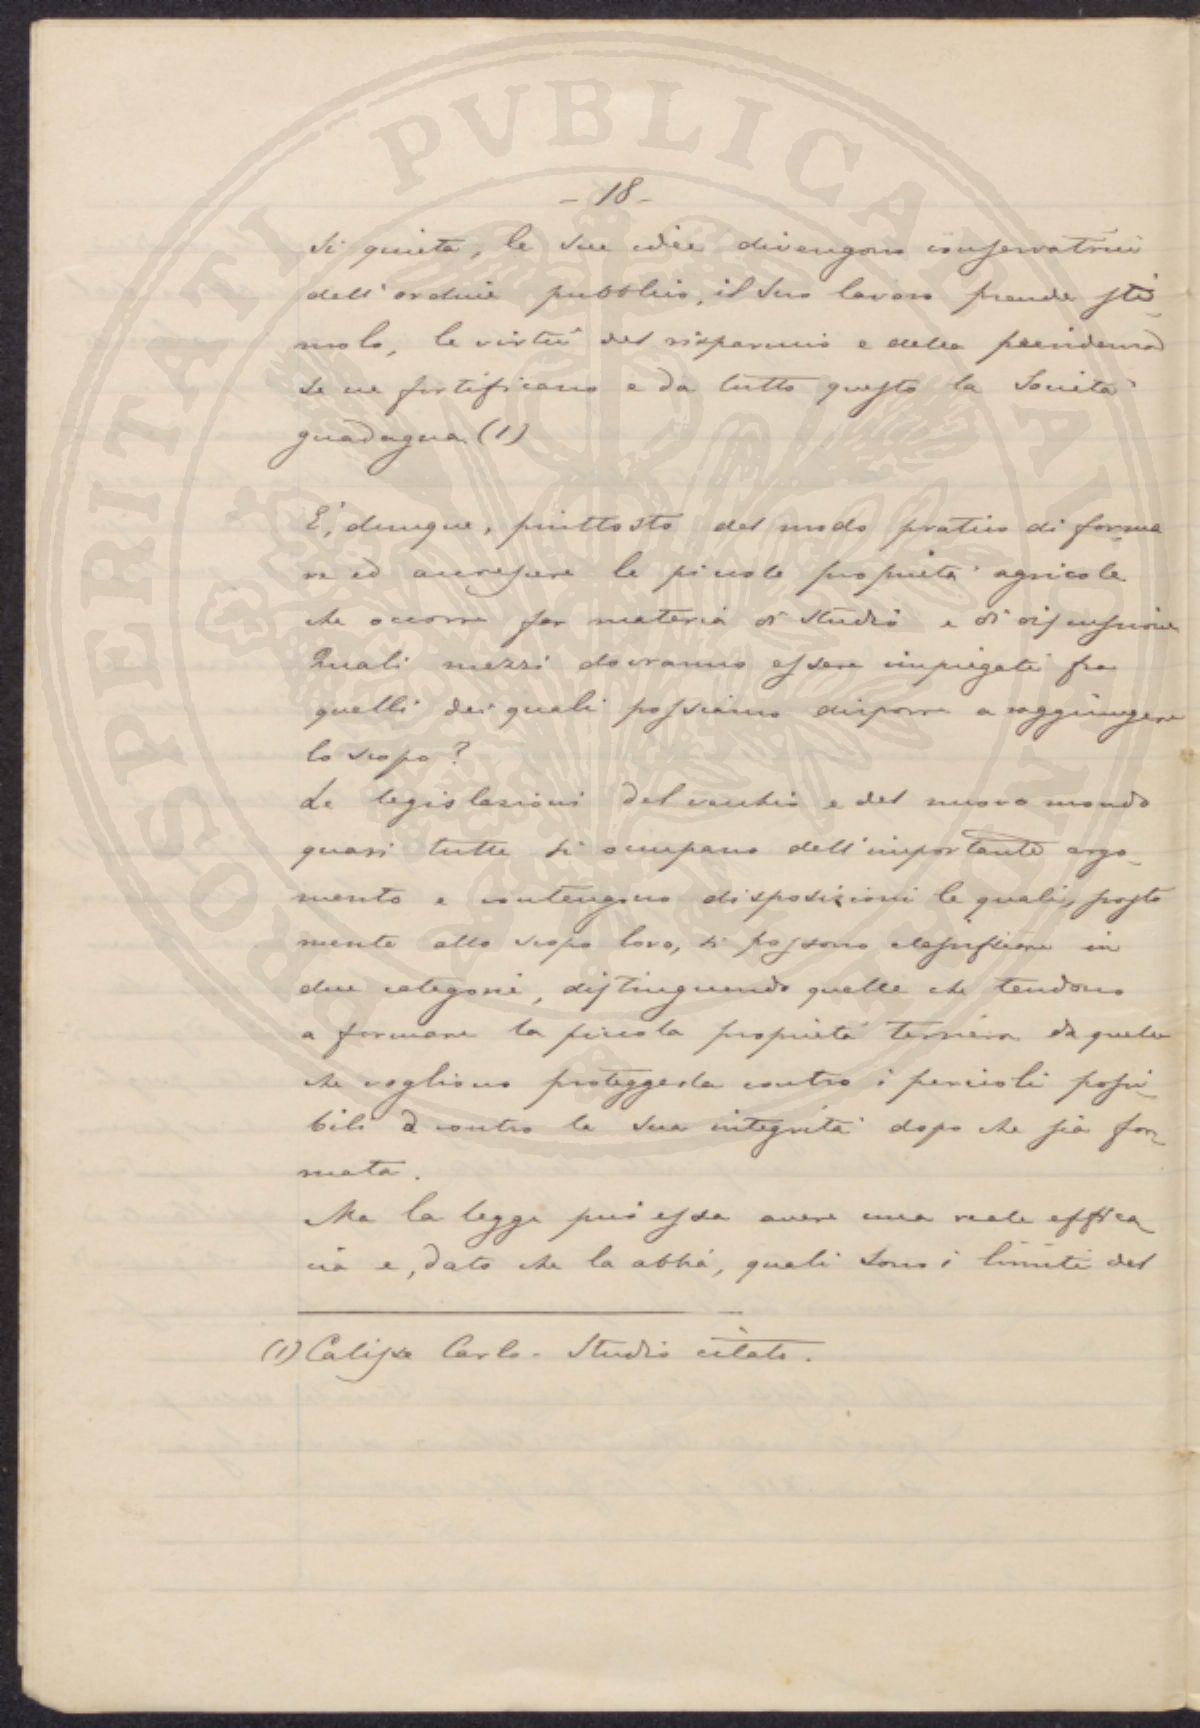 PROSPERITATI PVBLICAE AVGENDAE
- 18 -
si quieta, le sue idee divengono conservatrici
dell'ordine pubblico, il suo lavoro prende sti-
molo, le virtù del risparmio e della previdenza
se ne fortificano e da tutto questo la Società
guadagna (1)
È, dunque, piuttosto del modo pratico di forma
re ed accrescere le piccole proprietà agricole
che occorre far materia di studio e di discussione
Quali mezzi dovranno essere impiegati fra
quelli dei quali possiamo disporre a raggiungere
lo scopo?
Le legislazioni del vecchio e del nuovo mondo
quasi tutte si occupano dell'importante argo-
mento e contengono disposizioni le quali,
mente allo scopo loro, si possono classificare in
due categorie, distinguendo quelle che tendono
a formare la piccola proprietà terriera da quelle
che vogliono proteggerla contro i pericoli possi-
bili contro la sua integrità dopo che sia for-
mata.
Ma la legge può essa avere una reale effica
cia e, dato che la abbia, quali sono i limiti del
(1) Carlo - Studio citato.